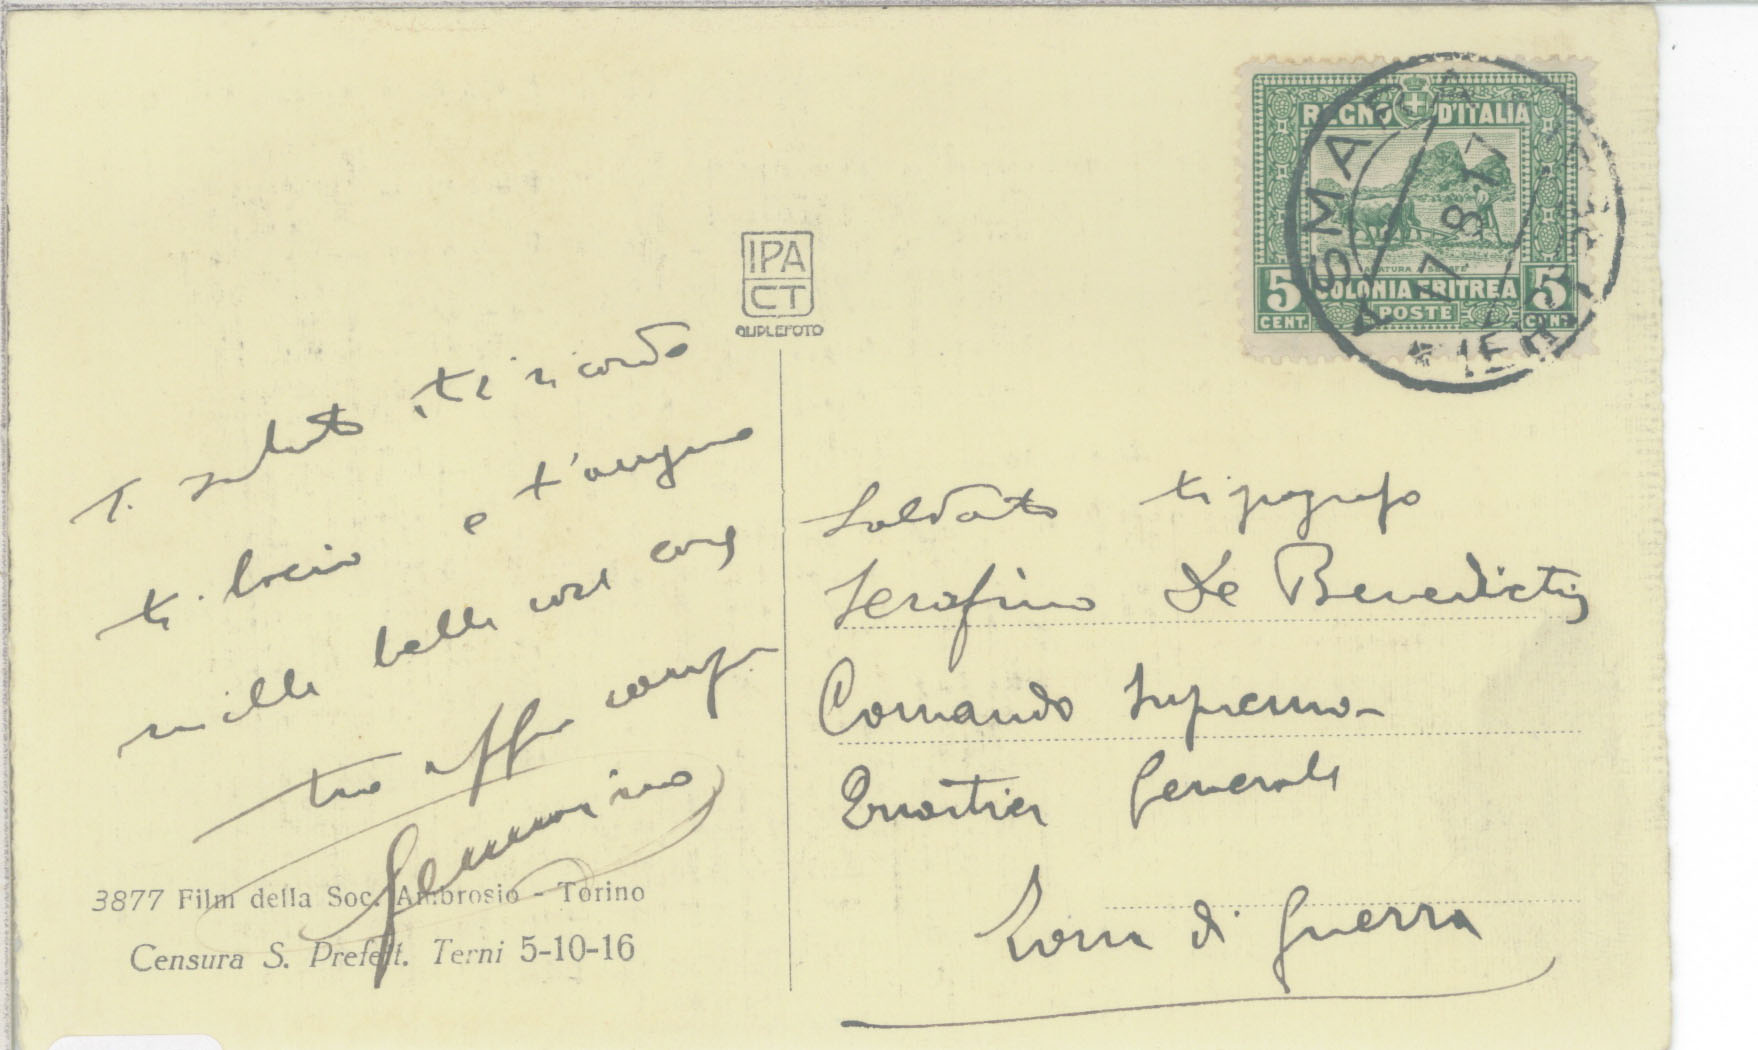 REGNO D'ITALIA
ARATURA A SENAFE
5 COLONIA ERITREA 5
CENT. POSTE CENT.
ASMARA
17 8 17
ERITREA
IPA
CT
Ti saluto, ti ricordo
ti bacio e t'auguro
mille belle cose
tuo affmo
Gennarino
3877 Film della Soc. Ambrosio - Torino
Censura S. Prefett. Terni 5-10-16
Soldato tipografo
Serafino De Benedictis
Comando Supremo
Quartier Generale
Zona di Guerra